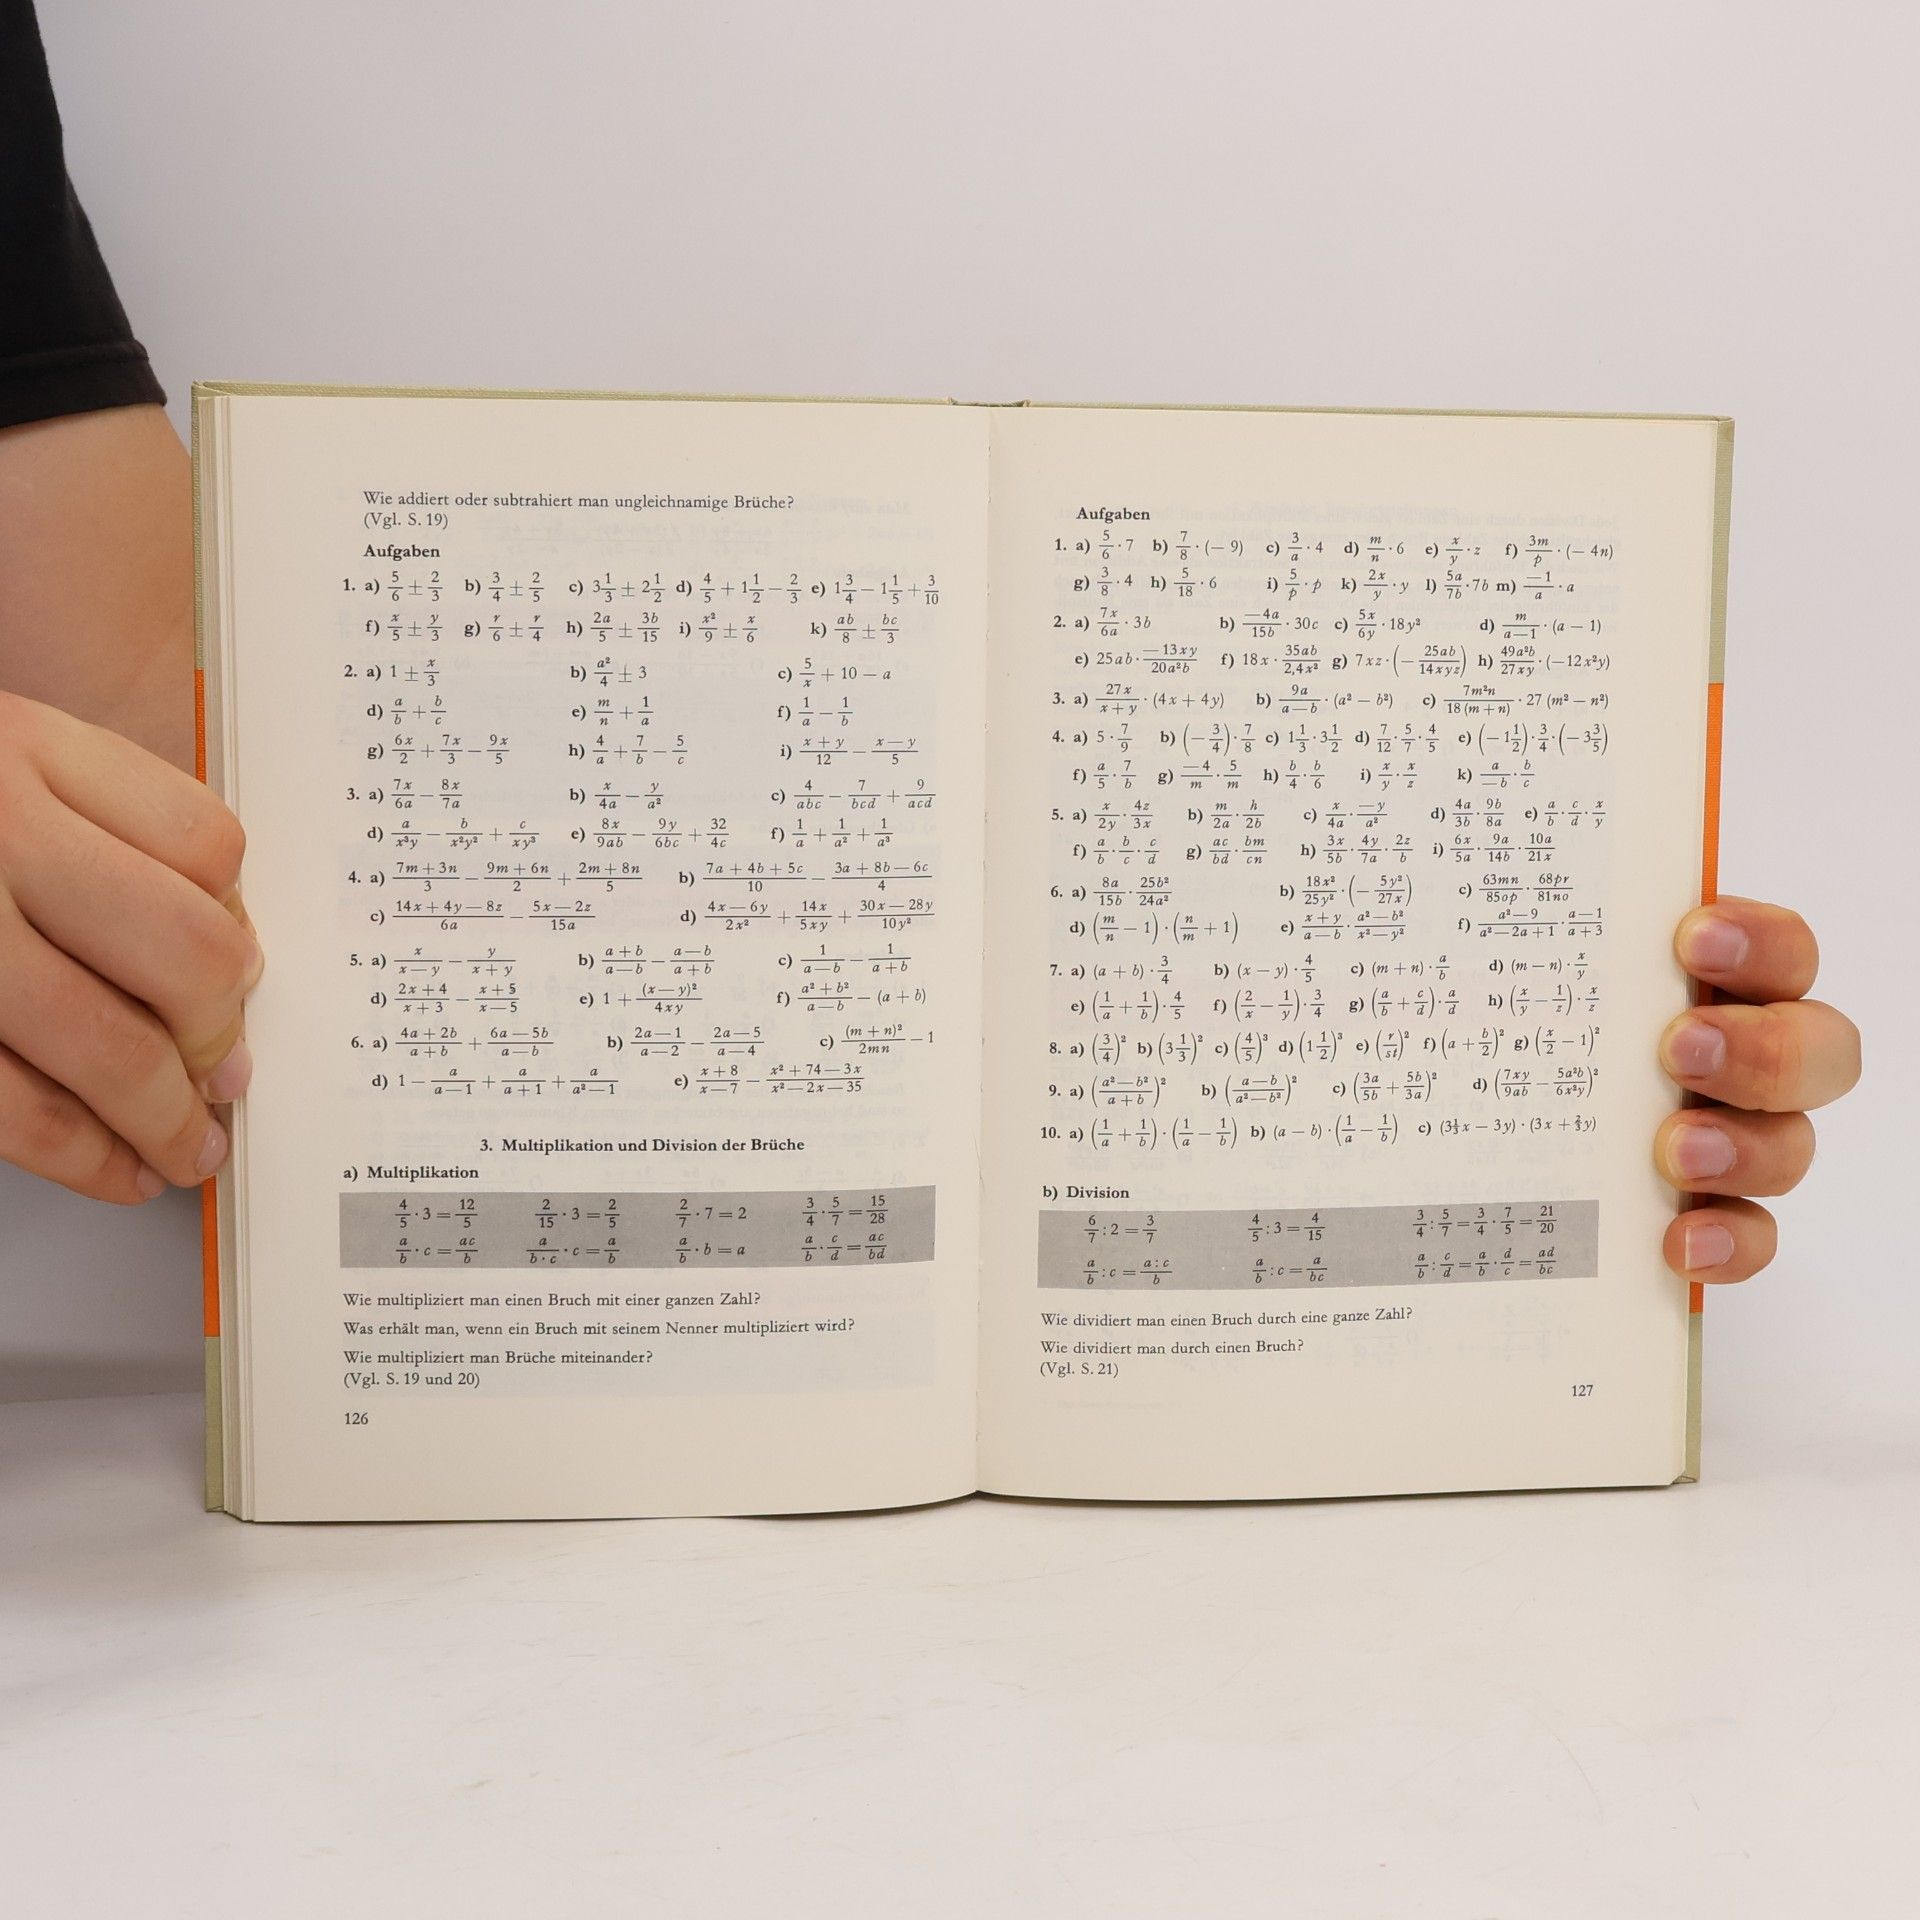 Wie addiert oder subtrahiert man ungleichnamige Brüche?
(Vgl. S. 19)
Aufgaben
1. a) 5/6 ± 2/3 b) 3/4 ± 2/5 c) 3 1/3 ± 2 1/2 d) 4/5 + 1 1/2 − 2/3 e) 1 3/4 − 1 1/5 + 3/10
f) x/5 ± y/3 g) r/6 ± r/4 h) 2a/5 ± 3b/15 i) x²/9 ± x/6 k) ab/8 ± bc/3
2. a) 1 ± x/3 b) a²/4 ± 3 c) 5/x + 10 − a
d) a/b + b/c e) m/n + 1/a f) 1/a − 1/b
g) 6x/2 + 7x/3 − 9x/5 h) 4/a + 7/b − 5/c i) (x + y)/12 − (x − y)/5
3. a) 7x/6a − 8x/7a b) x/4a − y/a² c) 4/abc − 7/bcd + 9/acd
d) a/x³y − b/x²y² + c/xy³ e) 8x/9ab − 9y/6bc + 32/4c f) 1/a + 1/a² + 1/a³
4. a) (7m + 3n)/3 − (9m + 6n)/2 + (2m + 8n)/5 b) (7a + 4b + 5c)/10 − (3a + 8b − 6c)/4
c) (14x + 4y − 8z)/6a − (5x − 2z)/15a d) (4x − 6y)/2x² + 14x/5xy + (30x − 28y)/10y²
5. a) x/(x − y) − y/(x + y) b) (a + b)/(a − b) − (a − b)/(a + b) c) 1/(a − b) − 1/(a + b)
d) (2x + 4)/(x + 3) − (x + 5)/(x − 5) e) 1 + (x − y)²/4xy f) (a² + b²)/(a − b) − (a + b)
6. a) (4a + 2b)/(a + b) + (6a − 5b)/(a − b) b) (2a − 1)/(a − 2) − (2a − 5)/(a − 4) c) (m + n)²/2mn − 1
d) 1 − a/(a − 1) + a/(a + 1) + a/(a² − 1) e) (x + 8)/(x − 7) − (x² + 74 − 3x)/(x² − 2x − 35)
3. Multiplikation und Division der Brüche
a) Multiplikation
4/5 · 3 = 12/5 2/15 · 3 = 2/5 2/7 · 7 = 2 3/4 · 5/7 = 15/28
a/b · c = ac/b a/(b · c) · c = a/b a/b · b = a a/b · c/d = ac/bd
Wie multipliziert man einen Bruch mit einer ganzen Zahl?
Was erhält man, wenn ein Bruch mit seinem Nenner multipliziert wird?
Wie multipliziert man Brüche miteinander?
(Vgl. S. 19 und 20)
126
Aufgaben
1. a) 5/6 · 7 b) 7/8 · (− 9) c) 3/a · 4 d) m/n · 6 e) x/y · z f) 3m/p · (− 4n)
g) 3/8 · 4 h) 5/18 · 6 i) 5/p · p k) 2x/y · y l) 5a/7b · 7b m) −1/a · a
2. a) 7x/6a · 3b b) −4a/15b · 30c c) 5x/6y · 18y² d) m/(a − 1) · (a − 1)
e) 25ab · −13xy/20a²b f) 18x · 35ab/2,4x² g) 7xz · (− 25ab/14xyz) h) 49a²b/27xy · (−12x²y)
3. a) 27x/(x + y) · (4x + 4y) b) 9a/(a − b) · (a² − b²) c) 7m²n/18(m + n) · 27 (m² − n²)
4. a) 5 · 7/9 b) (− 3/4) · 7/8 c) 1 1/3 · 3 1/2 d) 7/12 · 5/7 · 4/5 e) (− 1 1/2) · 3/4 · (− 3 3/5)
f) a/5 · 7/b g) −4/m · 5/m h) b/4 · b/6 i) x/y · x/z k) a/−b · b/c
5. a) x/2y · 4z/3x b) m/2a · h/2b c) x/4a · −y/a² d) 4a/3b · 9b/8a e) a/b · c/d · x/y
f) a/b · b/c · c/d g) ac/bd · bm/cn h) 3x/5b · 4y/7a · 2z/b i) 6x/5a · 9a/14b · 10a/21x
6. a) 8a/15b · 25b²/24a² b) 18x²/25y² · (− 5y²/27x) c) 63mn/85op · 68pr/81no
d) (m/n − 1) · (n/m + 1) e) (x + y)/(a − b) · (a² − b²)/(x² − y²) f) (a² − 9)/(a² − 2a + 1) · (a − 1)/(a + 3)
7. a) (a + b) · 3/4 b) (x − y) · 4/5 c) (m + n) · a/b d) (m − n) · x/y
e) (1/a + 1/b) · 4/5 f) (2/x − 1/y) · 3/4 g) (a/b + c/d) · a/d h) (x/y − 1/z) · x/z
8. a) (3/4)² b) (3 1/3)² c) (4/5)³ d) (1 1/2)³ e) (r/st)² f) (a + b/2)² g) (x/2 − 1)²
9. a) ((a² − b²)/(a + b))² b) ((a − b)/(a² − b²))² c) (3a/5b + 5b/3a)² d) (7xy/9ab − 5a²b/6x²y)²
10. a) (1/a + 1/b) · (1/a − 1/b) b) (a − b) · (1/a − 1/b) c) (3 1/3 x − 3y) · (3x + 2/3 y)
b) Division
6/7 : 2 = 3/7 4/5 : 3 = 4/15 3/4 : 5/7 = 3/4 · 7/5 = 21/20
a/b : c = (a : c)/b a/b : c = a/bc a/b : c/d = a/b · d/c = ad/bc
Wie dividiert man einen Bruch durch eine ganze Zahl?
Wie dividiert man durch einen Bruch?
(Vgl. S. 21)
127